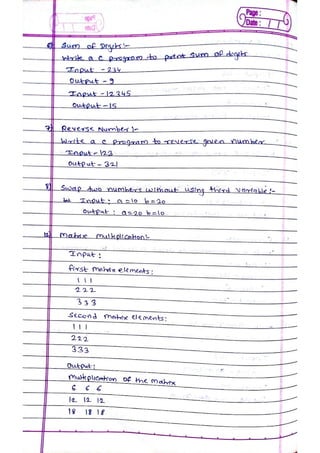 Page:
Date:
6) Sum of Digits:-
Write a C program to print sum of digits
Input - 234
Output - 9
Input - 12345
Output - 15
7) Reverse Number:-
Write a C program to reverse given number
Input - 123
Output - 321
8) Swap two numbers without using third variable:-
Input: a=10 b=20
Output: a=20 b=10
matrix multiplication:-
Input:
first matrix elements:
1 1 1
2 2 2
3 3 3
Second matrix elements:
1 1 1
2 2 2
3 3 3
Output:
Multiplication of the matrix
6 6 6
12 12 12
18 18 18